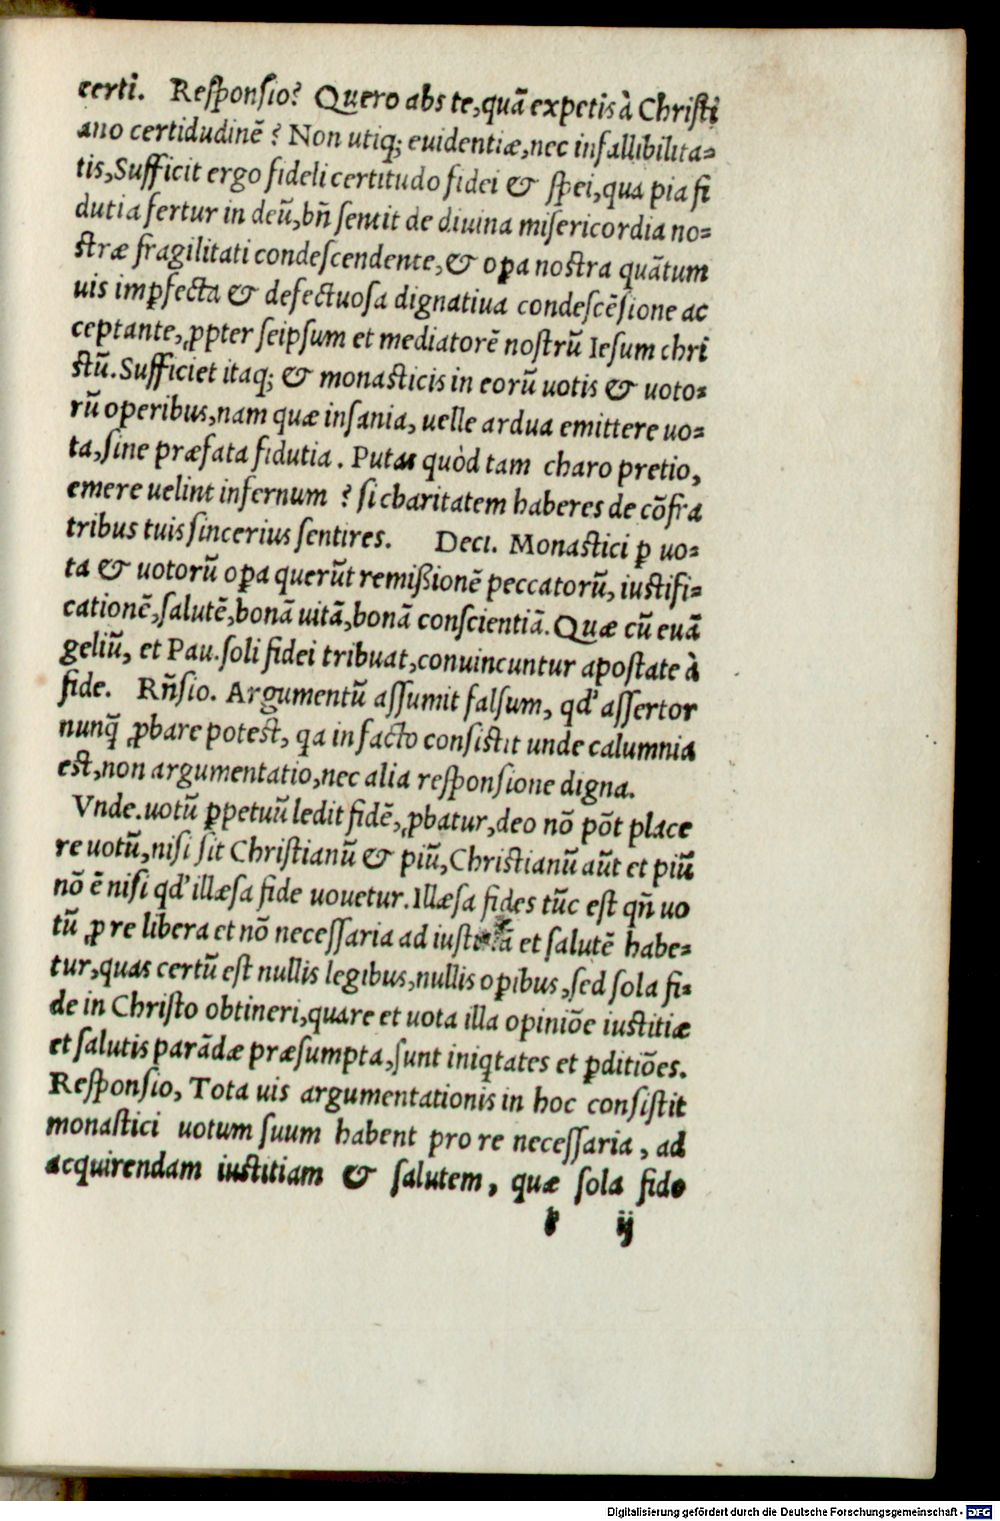 certi. Reſponſio? Quero abs te, quã expetis à Chriſti
ano certidudinẽ? Non utiq; euidentiæ, nec infallibilita⸗
tis, Sufficit ergo fideli certitudo fidei & ſpei, qua pia fi
dutia fertur in deũ, bñ ſentit de diuina miſericordia no⸗
ſtræ fragilitati condeſcendente, & oꝑa noſtra quãtum
uis imꝑfecta & defectuoſa dignatiua condeſcẽſione ac
ceptante, ꝓpter ſeipſum et mediatorẽ noſtrũ Ieſum chri
ſtũ. Sufficiet itaq; & monaſticis in eorũ uotis & uoto⸗
rũ operibus, nam quæ inſania, uelle ardua emittere uo⸗
ta, ſine præfata fidutia. Putas quòd tam charo pretio,
emere uelint infernum? ſi charitatem haberes de cõfra
tribus tuis ſincerius ſentires. Deci. Monaſtici ꝑ uo⸗
ta & uotorũ oꝑa querũt remißionẽ peccatorũ, iuſtifi⸗
cationẽ, ſalutẽ, bonã uitã, bonã conſcientiã. Quæ cũ euã
geliũ, et Pau. ſoli fidei tribuat, conuincuntur apoſtate à
fide. Rñſio. Argumentũ aſſumit falſum, qď aſſertor
nunq̃ ꝓbare poteſt, qa in facto conſiſtit unde calumnia
eſt, non argumentatio, nec alia reſponſione digna.
Vnde. uotũ ꝑpetuũ ledit fidẽ, ꝓbatur, deo nõ põt place
re uotũ, niſi ſit Chriſtianũ & piũ, Chriſtianũ aũt et piũ
nõ ẽ niſi qď illæſa fide uouetur. Illæſa fides tũc eſt qñ uo
tũ ꝓ re libera et nõ neceſſaria ad iuſtitiã et ſalutẽ habe⸗
tur, quas certũ eſt nullis legibus, nullis oꝑibus, ſed ſola fi⸗
de in Chriſto obtineri, quare et uota illa opiniõe iuſtitiæ
et ſalutis parãdæ præſumpta, ſunt iniq̃tates et ꝑditiões.
Reſponſio, Tota uis argumentationis in hoc conſiſtit
monaſtici uotum ſuum habent pro re neceſſaria, ad
acquirendam iuſtitiam & ſalutem, quæ ſola fide
ij
Digitalisierung gefördert durch die Deutsche Forschungsgemeinschaft - DFG